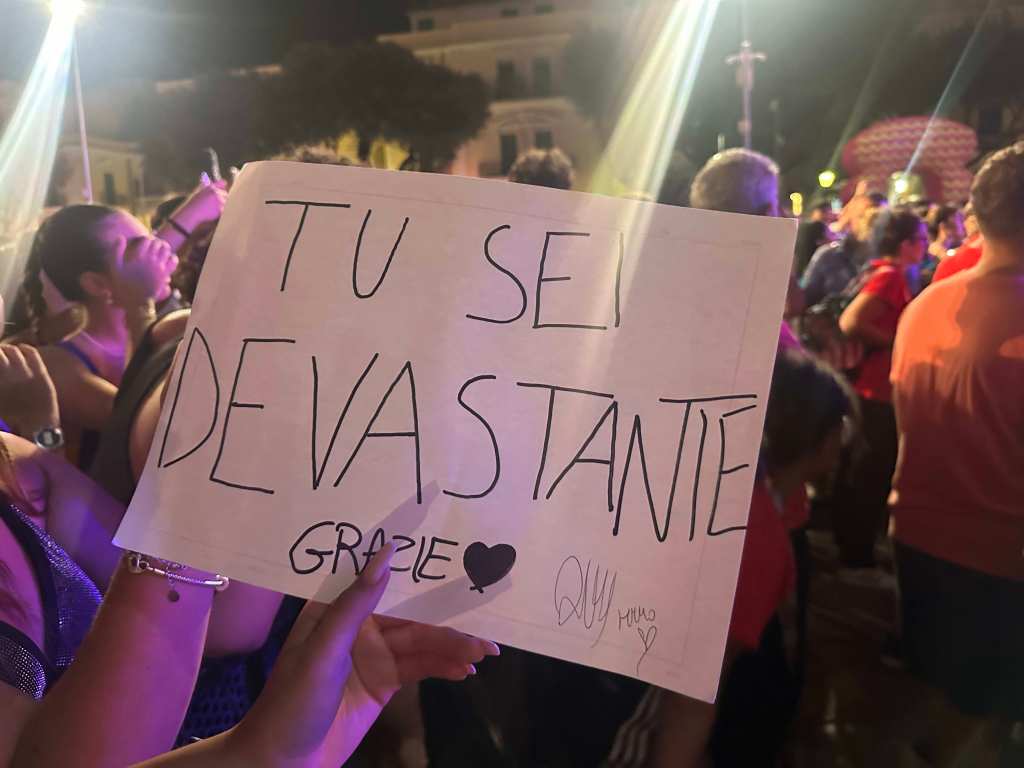 TU SEI
DEVASTANTE
GRAZIE